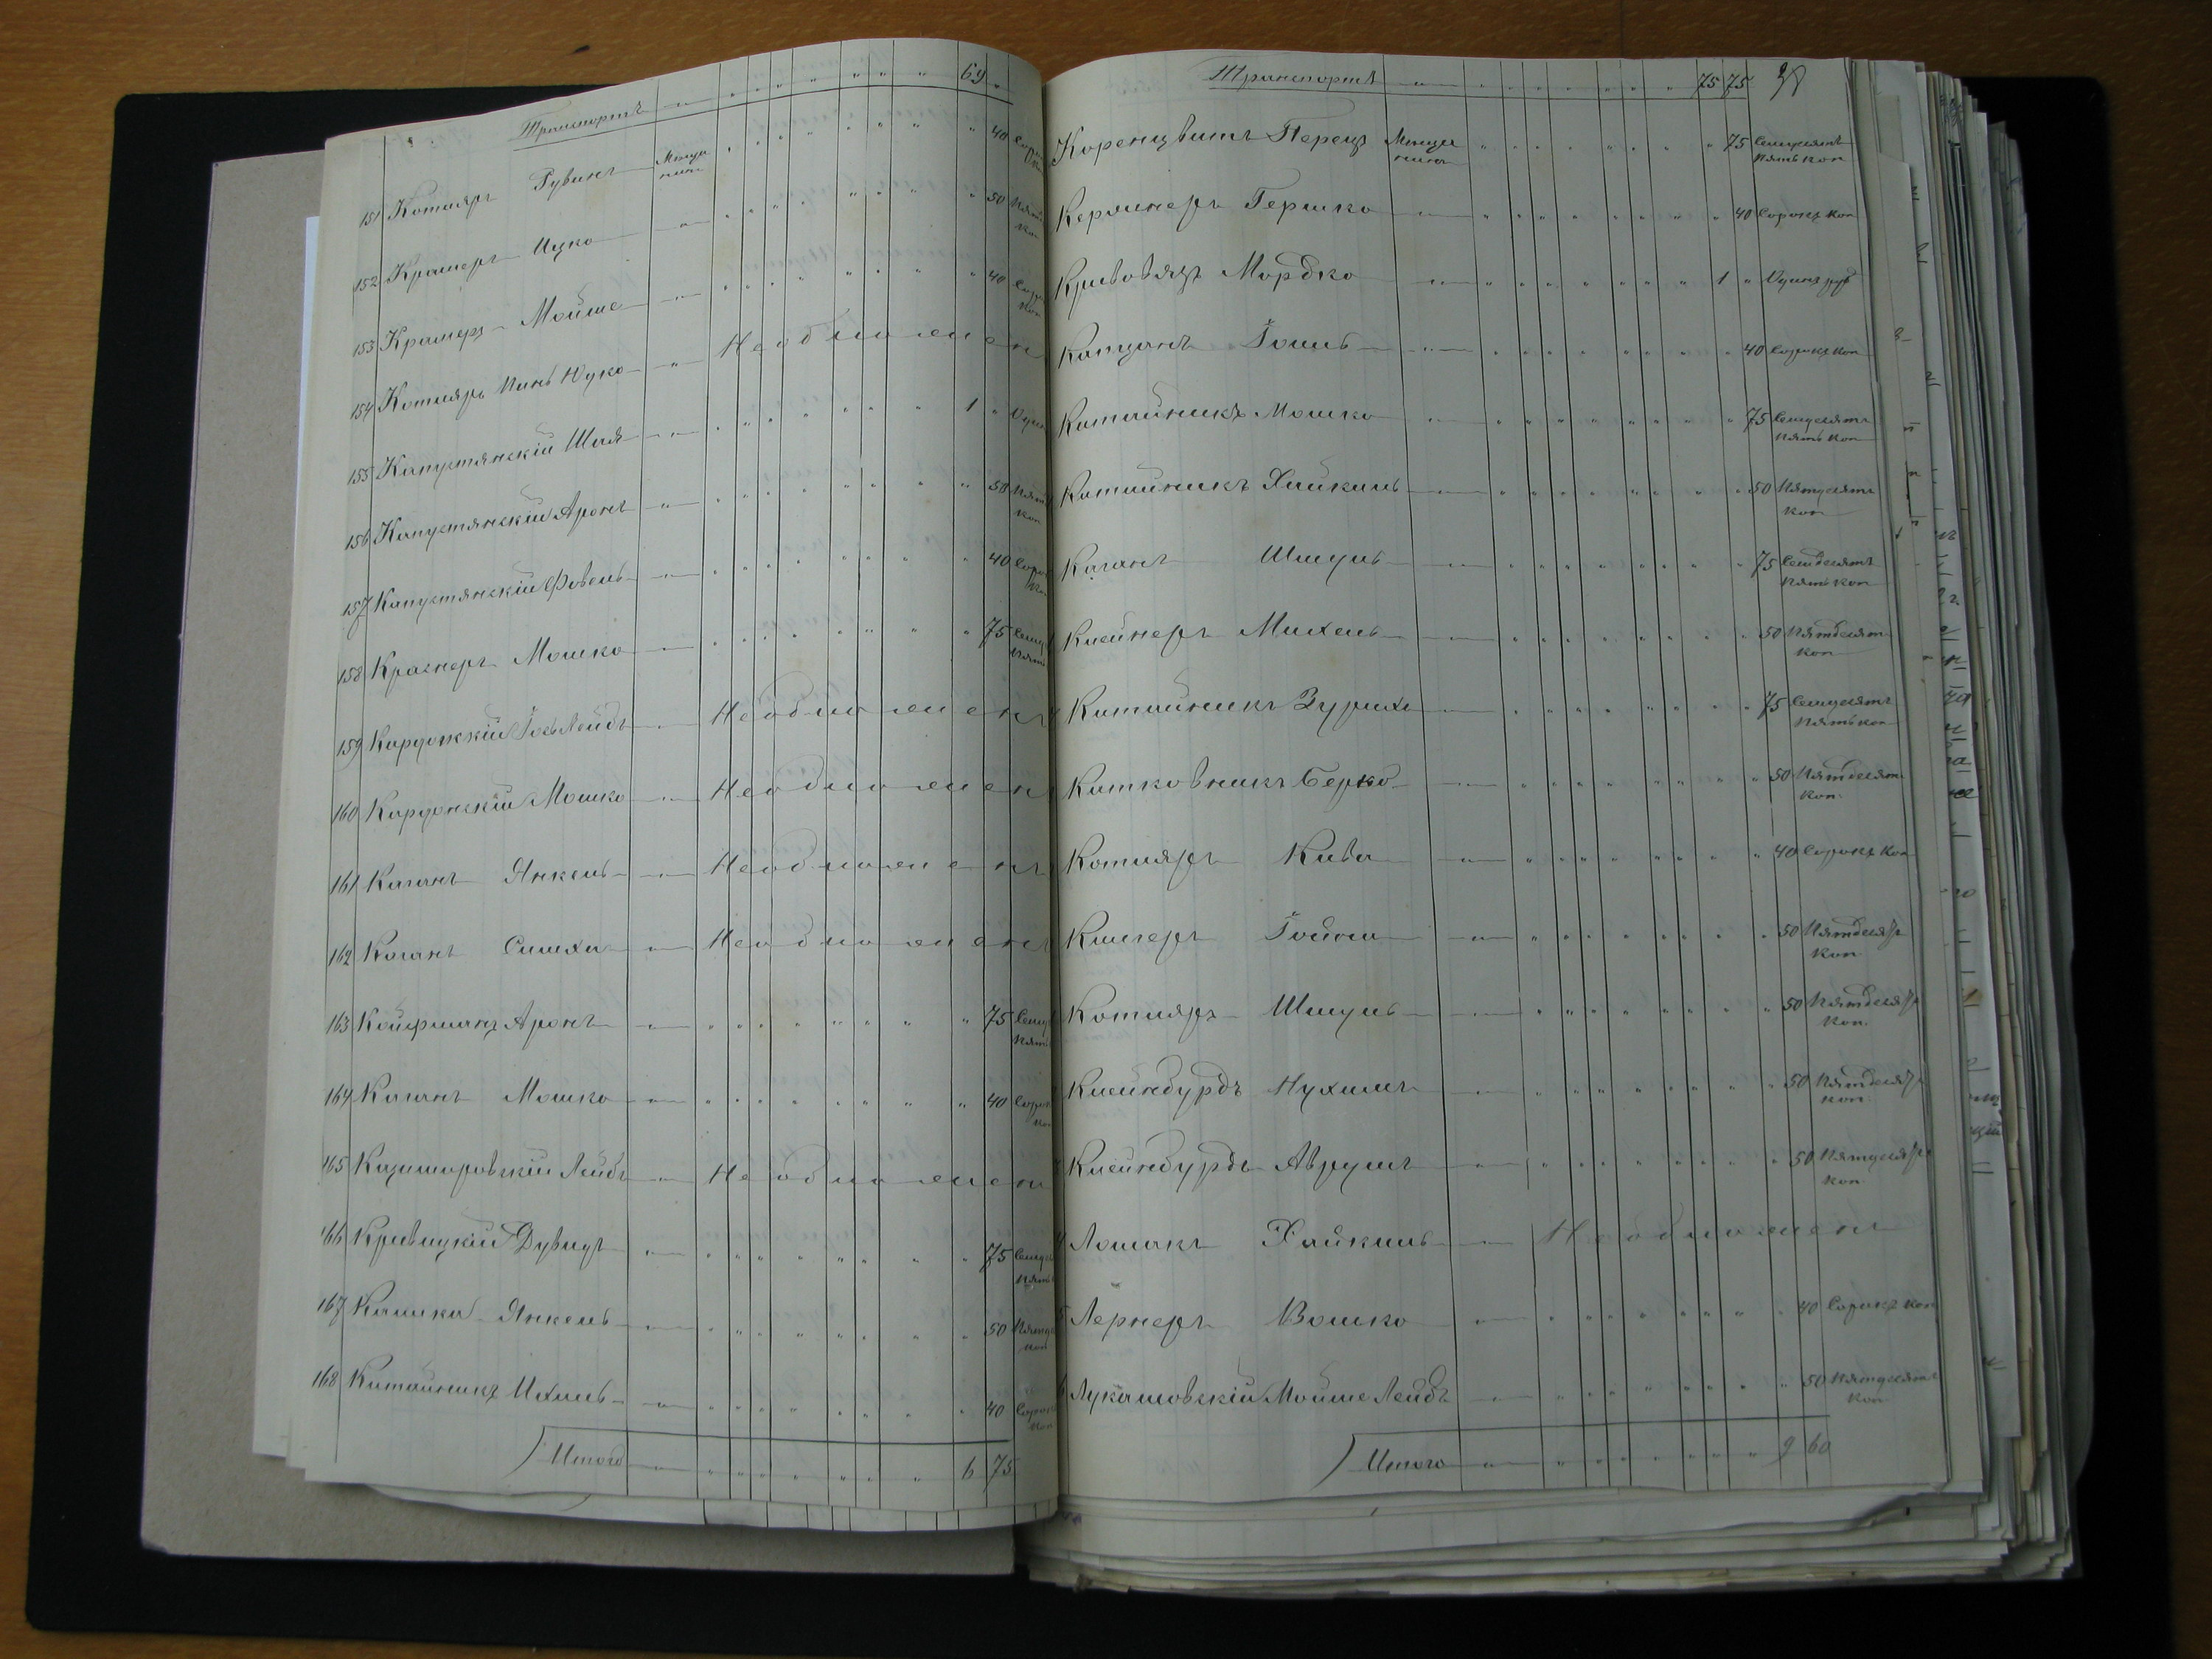 Транспортъ 69 "
151 Котляръ Рувинъ Мещанинъ 40 Сорокъ
152 Крамеръ Ицко 50 Пять кон
153 Крамеръ Мойше 40 Сорок кон
154 Котляръ Пинь Юцко Необложен
155 Капустянскій Шая 1 " Один
156 Капустянскій Аронъ 50 Пять кон
157 Капустянскій Фовель 40 Сорок
158 Краснеръ Мошко 75 Семд Пять
159 Кордонскій Іось Лейбъ Необложенъ
160 Кордонскій Мошко Необложен
161 Каганъ Янкель Необложенъ
162 Коганъ Симха Необложенъ
163 Койфманъ Аронъ 75 Семд Пять
164 Каганъ Мошко 40 Сорок коп
165 Казимировскій Лейбъ Необложен
166 Кривицкій Дувидъ 75 Семдс Пять
167 Камика Янкель 50 Пятд коп
168 Китайникъ Ихиль 40 Сорок коп
Итого 6 75
Транспортъ 75 75
Коренцвитъ Перецъ Мещанинъ 75 Семдесятъ
пять коп
Кержнеръ Гершко 40 Сорокъ коп
Кривовязъ Мордко 1 " Одинъ руб
Капланъ Іоиль 40 Сорокъ коп
Китайникъ Мошко 75 Семдесятъ
пять коп
Китайникъ Хайкиль 50 Пятдесятъ
коп
Каганъ Шмуль 75 Семдесятъ
пять коп
Клейнеръ Михель 50 Пятдесят
коп
Китайникъ Зурих 75 Семдесятъ
пять коп
Китковникъ Берко 50 Пятдесят
коп
Котляръ Кива 40 Сорокъ коп
Клигеръ Іойна 50 Пятдесят
коп
Котляръ Шмуль 50 Пятдесят
коп.
Клейнбурдъ Нухимъ 50 Пятдесят
коп
Клейнбурдъ Аврумъ 50 Пятдесят
коп
Лошакъ Хайкиль Необложенъ
Лернеръ Волько 40 Сорокъ коп
Лукашовскій Мойше Лейбъ 50 Пятдесятъ
коп
Итого 9 60